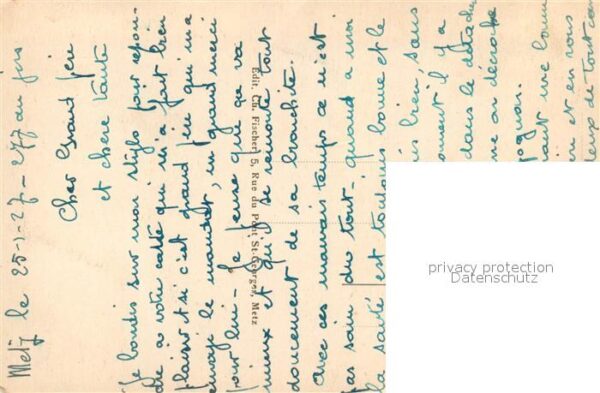 Metz le 25-1-27 - 277 au jus
Cher Grand Péri
et chère tante
Je bondis sur mon stylo pour répon-
dre à votre carte qui m'a fait bien
plaisir et si c'est grand Péri qui m'a
envoyé le mandat, un grand merci
pour lui - Je pense que ça va
mieux et qu'il se remonte tout
doucement de sa bronchite.
Avec ces mauvais temps ce n'est
pas sain du tout - quand à moi
la santé est toujours bonne et le
is bien, sans
moment il y a
dans le détach
me on décroche
pognon.
ant une bonne
in et en vous
deux de tout cœ
Edit. Ch. Fischer, 5, Rue du Pont St-Georges, Metz
privacy protection
Datenschutz